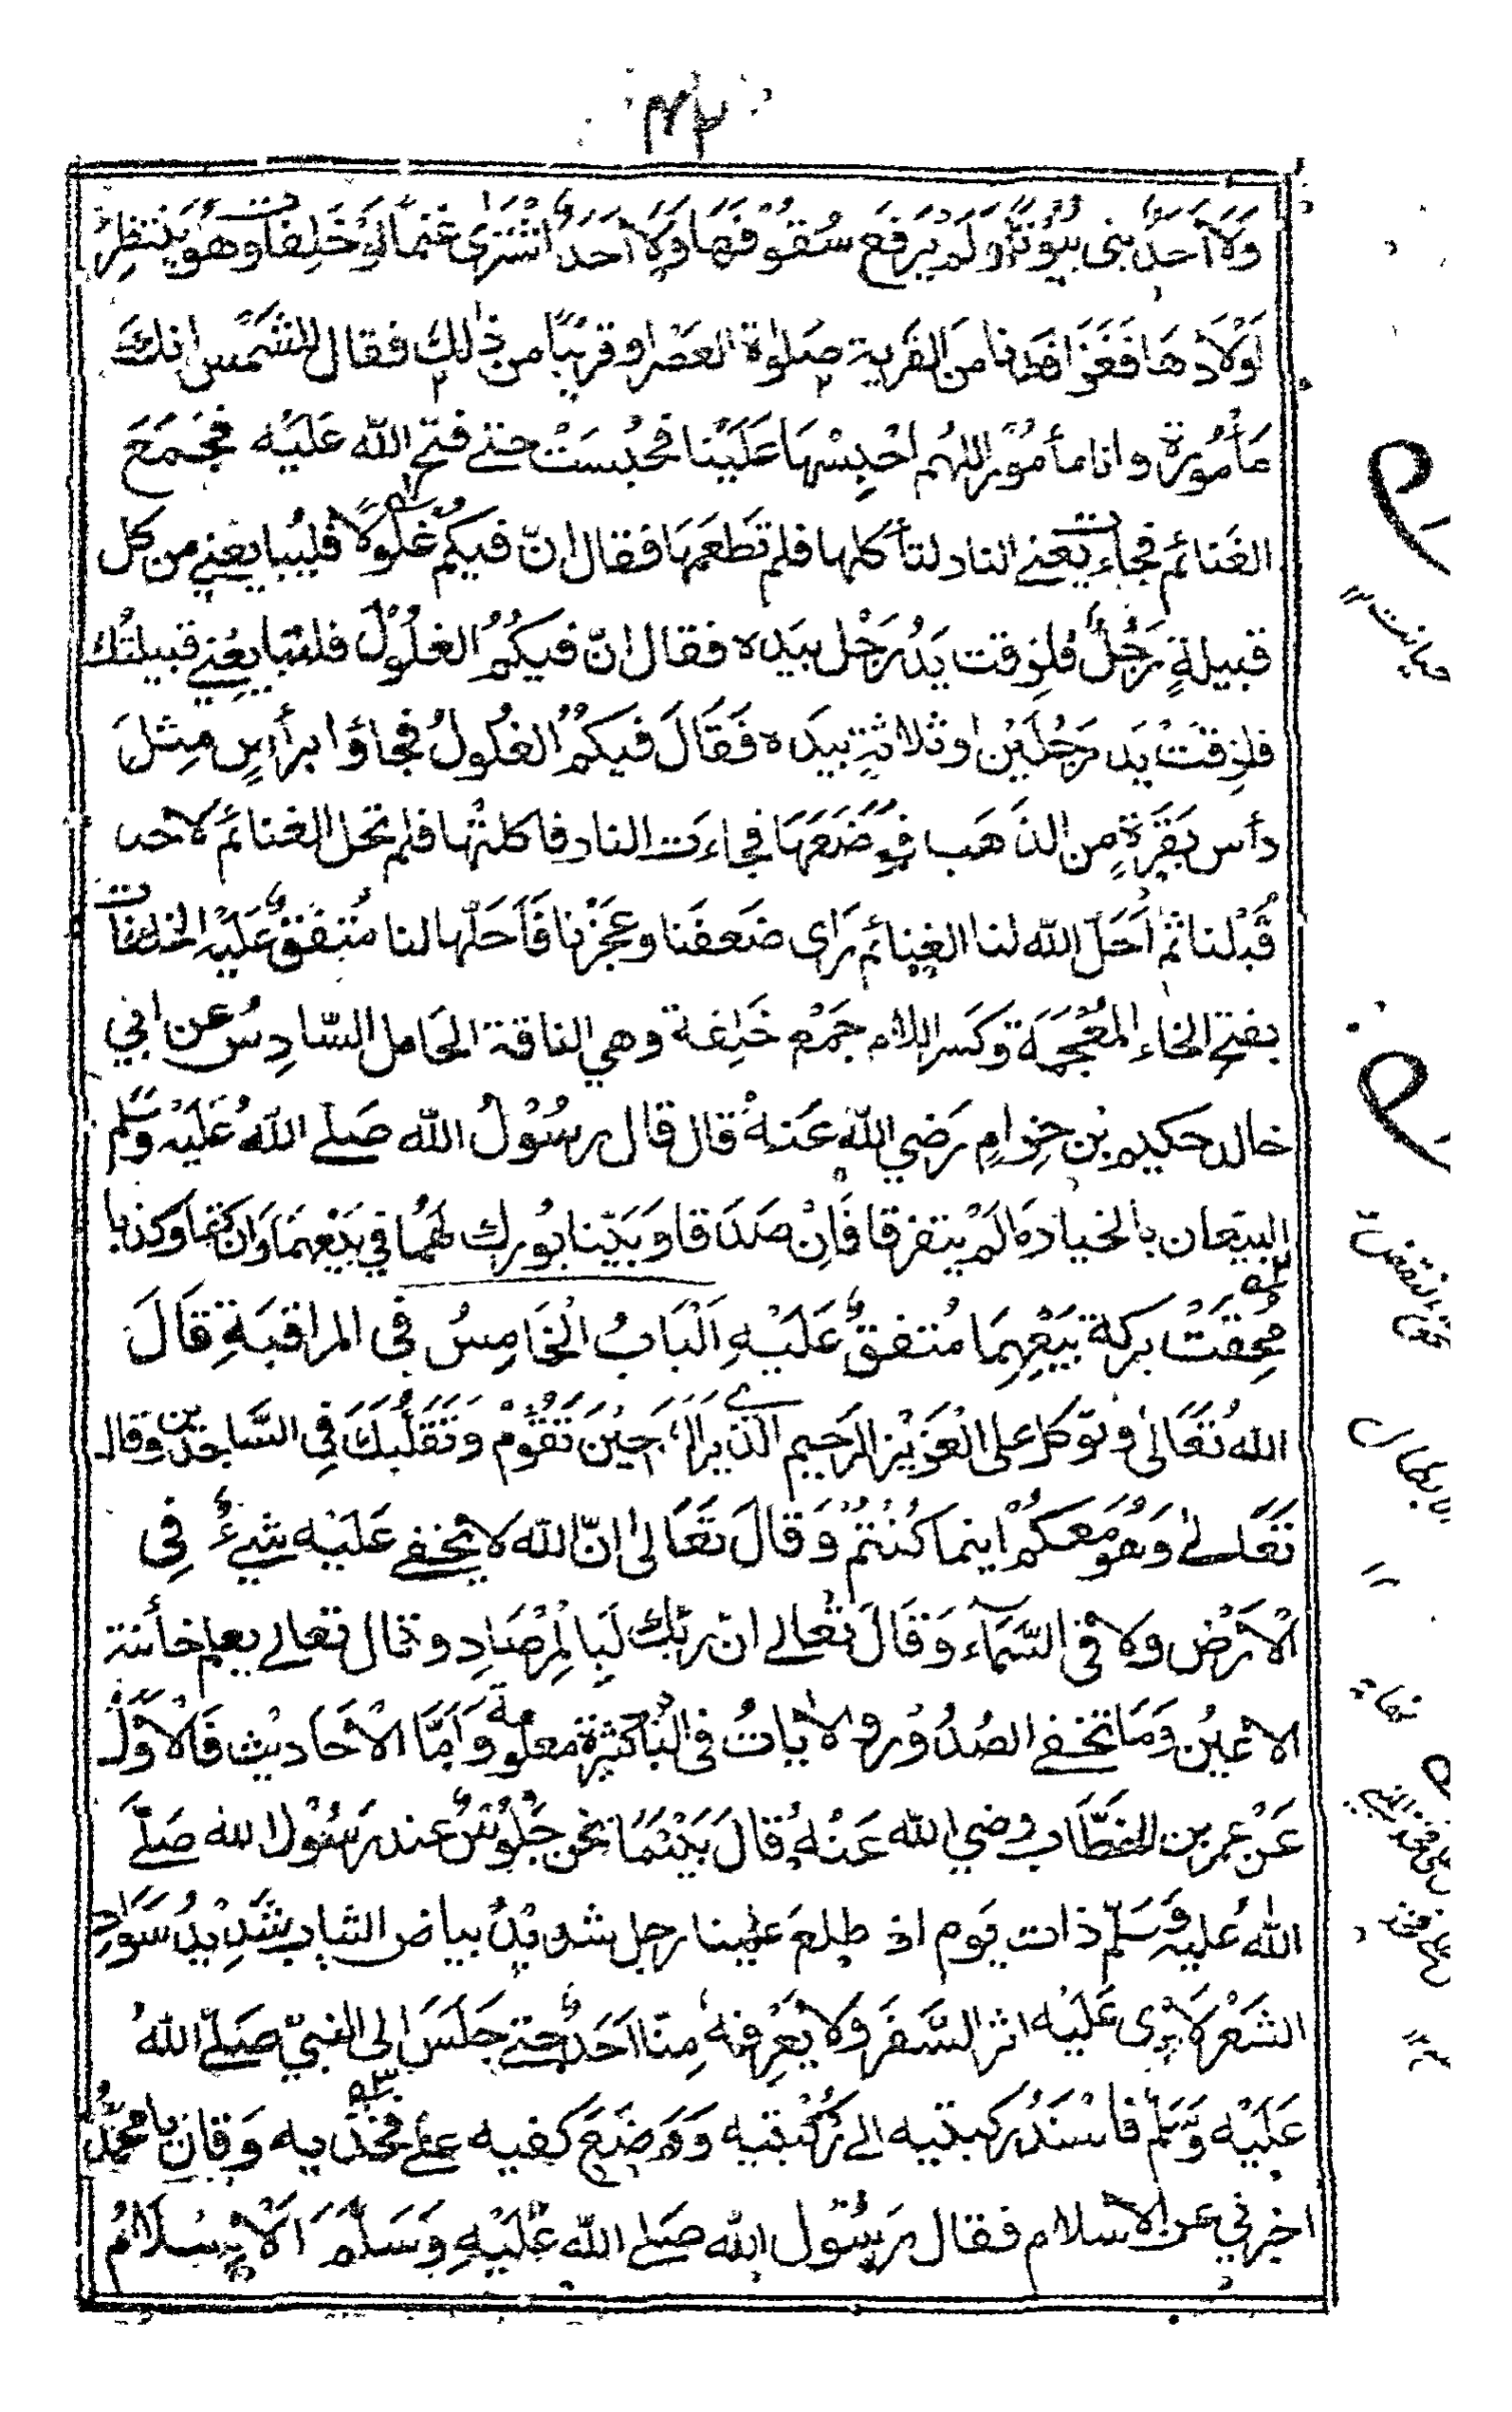 ٤٢
وَلَا أَحَدٌ بَنى بُيُوْتًا وَلَمْ يَرْفَعْ سُقُوْفَهَا وَلَا أَحَدٌ اشْتَرٰى غَنَمًا اَوْ خَلِفَاتٍ وَهُوَ يَنْتَظِرُ
اَوْلَادَهَا فَغَزَا فَدنا مَنَ القَرية صَلوٰة العَصْر اوقريبًا من ذٰلِك فقال للشَمْس انكَ
مَأمُورة وانا مأمُوْر اللهُم احْبِسْهَا عَلَيْنَا فحُبِسَتْ حتے فتح الله عَلَيْه فجَمَعَ
الغَنائم فجاءت يعنے النار لتأكلها فلم تَطْعَمْهَا فقال انّ فيكمْ غُلُوْلًا فليُبايعنے من كل
قبيلةٍ رَجُلٌ فلزقت يَدُ رَجُل بيَده فقال انّ فيكُمْ الغلُوْلَ فلتبايعْنے قبيلتُك
فلزِقَتْ يَد رَجُلَيْن اوثلاثةٍ بيَده فَقَالَ فيكمُ الغلولُ فجاؤا برأسٍ مِثلَ
رأس بَقَرَةٍ مِن الذَهَب فوَضَعَهَا فجاءَت النار فاكلتْها فلم تحل الغنائم لاحد
قَبْلنا ثم اَحَلَ الله لنا الغنائم رَاى ضَعفَنا وعَجَزْنا فَاَحَلّها لنا مُتفقٌ عَلَيْه الخلفات
بفتح الخاء المُعْجَمَة وكَسر اللام جَمْع خَلِفة وهي الناقة الحَامل السّادِسُ عن ابي
خالد حكيم بْن حِزامٍ رَضي الله عَنهُ قال قال رسُوْلُ الله صَلے اللهُ عَلَيْه وَسَلم
البيّعان بالخيار مَالَمْ يتفرقا فَاِنْ صَدَقا وَبَيّنا بُورك لَهُمَا في بَيْعهمَا وَاِن كتما وكذبا
مُحِقَتْ بركة بَيْعِهِمَا مُتفقٌ عَلَيْهِ اَلْبَابُ الْخَامِسُ فى المراقبَةِ قَالَ
الله تَعَالىٰ وتوَكل على الْعَزيْز الرَحيم الَّذي يَرٰاكَ حِيْنَ تَقُوْمُ وَتَقَلُّبَكَ فِى السَّاجِدِيْن وقال
تَعَالےٰ وَهُوَ مَعكمْ اينما كُنْتُمْ وَقالَ تَعَالىٰ انّ الله لا يخفے عَلَيْه شيءٌ فِى
الْاَرْض ولا فى السَّمَآء وَقَالَ تعالے ان رَبّك لَبِالْمِرْصَادِ وقال تعالے يعلم خائنة
الاعيُن وَمَا تخفے الصُدُوْر والآيَاتُ فى البَاب كثيْرة مَعْلُوْمة وَاَمَّا الْاَحَاديْث فَالْاَوَّلُ
عَنْ عمر بن الخطّاب رضي الله عَنْهُ قَالَ بَيْنَمَا نحن جُلُوْسٌ عند رَسُوْل الله صَلّے
اللهُ عليْه وَسَلّم ذات يَوم اذ طلعَ علينا رجل شديْدُ بياض الثياب شَدِيْدُ سَوَادِ
الشَعْر لَا يُرٰى عَلَيْه اثر السَّفَر وَلا يَعْرفهُ مِنّا اَحَدٌ حتے جَلَسَ الى النبيّ صَلّے اللهُ
عَلَيْه وَسَلَّم فَاسْنَدَ رُكبتيه الے رُكْبَتيه وَوَضَعَ كفيه علے فخذيه وَقَال يا مُحَمَّدُ
اخبرني عن الاسلام فقال رَسُوْل الله صَلے الله عَلَيْهِ وَسَلَّمَ اَلْاِسْلَامُ